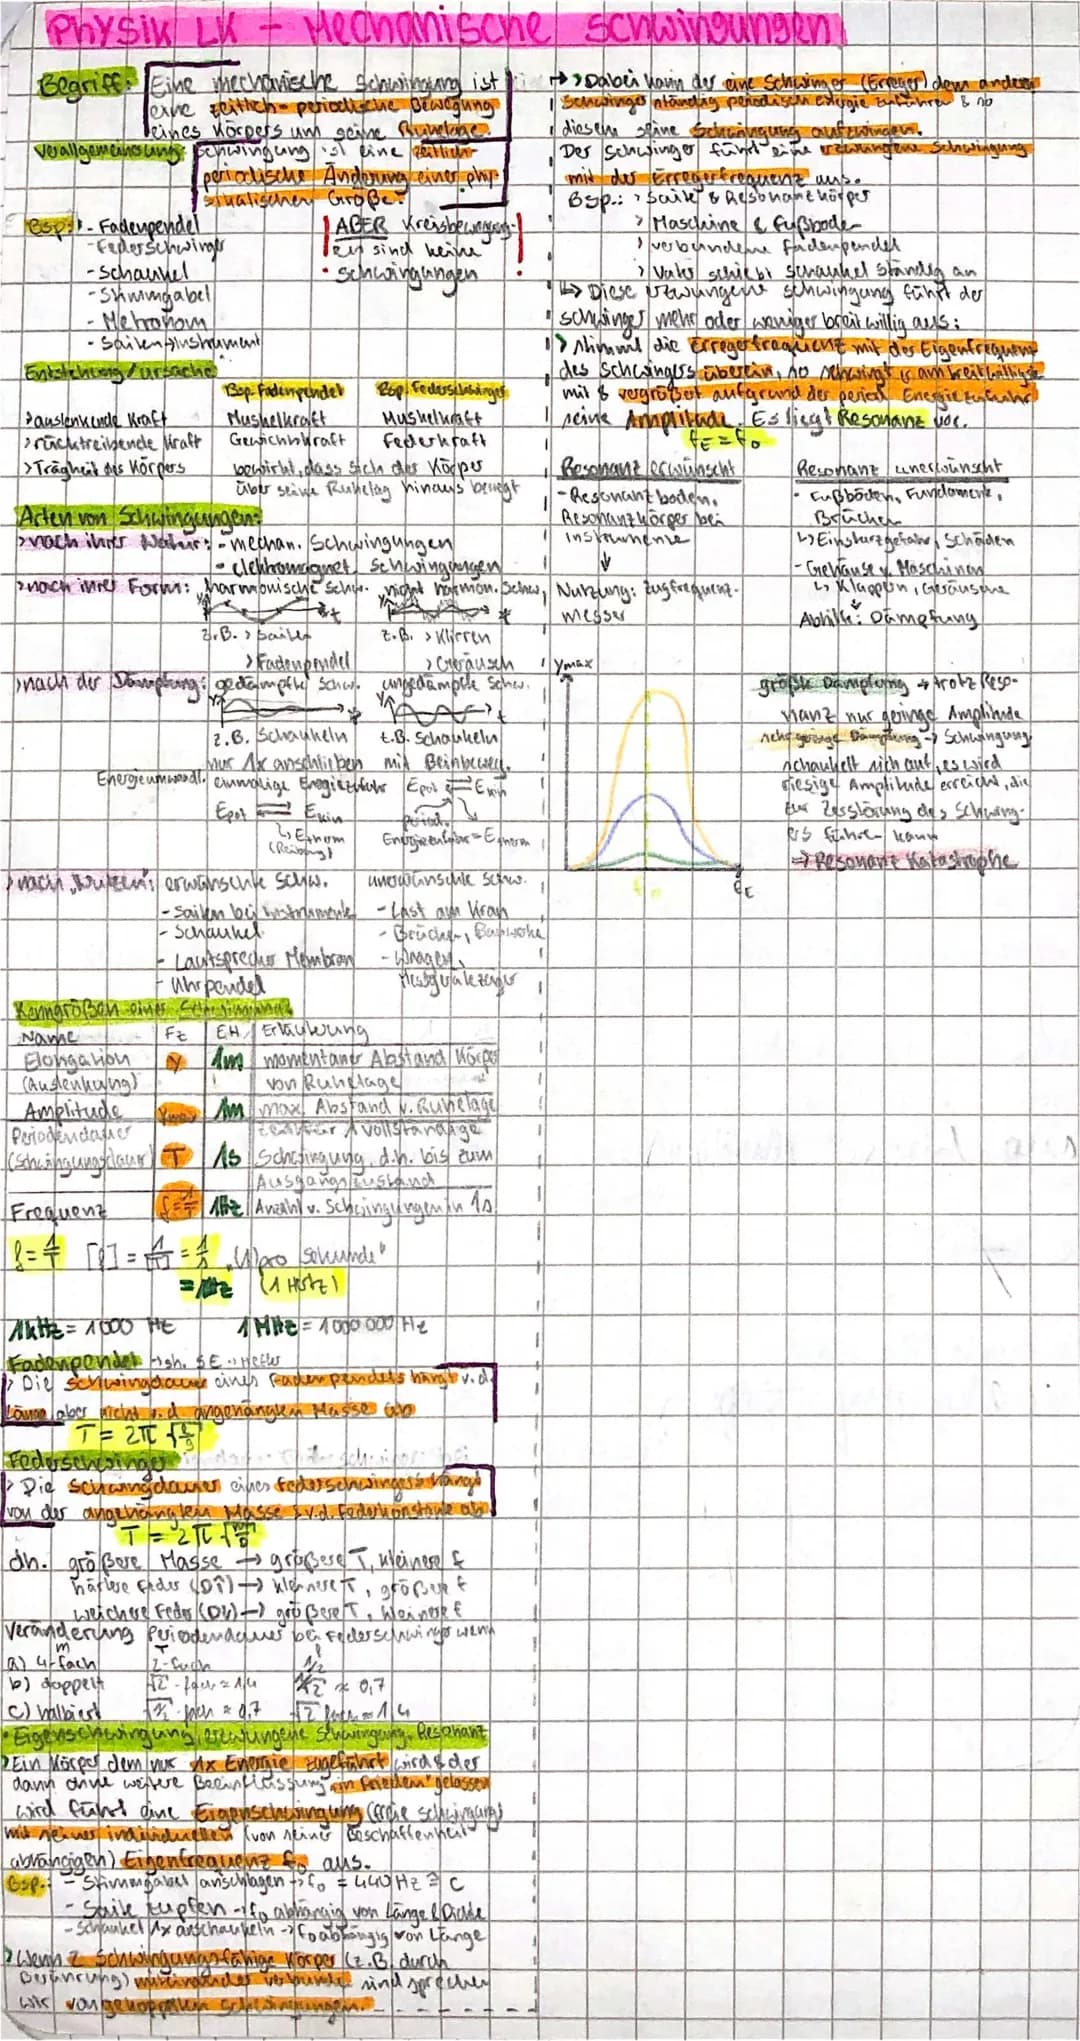 Physik LK - Mechanische Schwingungen
Begriff: Eine mechanische Schwingung ist
eine zeitlich-periodische Bewegung
eines Körpers um seine Ruhelage.
Verallgemeinerung: Schwingung ist eine zeitlich-
periodische Änderung einer phy-
sikalischen Größe.
Bsp.: - Fadenpendel
- Federschwinger
- Schaukel
- Stimmgabel
- Metronom
- Saiteninstrument
! ABER Kreisbewegung-
en sind keine
Schwingungen !
Entstehung/Ursache
Bsp. Fadenpendel Bsp. Federschwinger
> auslenkende Kraft Muskelkraft Muskelkraft
> rücktreibende Kraft Gewichtskraft Federkraft
> Trägheit des Körpers bewirkt, dass sich der Körper
über seine Ruhelag hinaus bewegt
Arten von Schwingungen:
> nach ihrer Natur: - mechan. Schwingungen
- elektromagnet. Schwingungen
> nach ihrer Form: harmonische Schw. nicht harmon. Schw.
y t y t
z.B. > Saiten z.B. > Klirren
> Fadenpendel > Geräusch
> nach der Dämpfung: gedämpfte Schw. ungedämpfte Schw.
y t y t
z.B. Schaukeln z.B. Schaukeln
nur 1x anschieben mit Beinbeweg.
Energieumwandl. einmalige Energiezufuhr Epot ⇌ Ekin
Epot ⇌ Ekin period.
↳ Etherm Energiezufuhr = Etherm
(Reibung)
> nach "Nutzen": erwünschte Schw. unerwünschte Schw.
- Saiten bei Instrumente - Last am Kran
- Schaukel - Brücken, Bauwerke
- Lautsprecher Membran - Waagen,
- Uhrpendel Messgerätezeiger
Kenngrößen einer Schwingung
Name Fz EH Erläuterung
Elongation y 1m momentaner Abstand Körper
(Auslenkung) von Ruhelage
Amplitude ymax 1m max. Abstand v. Ruhelage
Periodendauer Zeit für 1 vollständige
(Schwingungsdauer) T 1s Schwingung, d.h. bis zum
Ausgangszustand
Frequenz f=1/T 1Hz Anzahl v. Schwingungen in 1s
f = 1/T [f] = 1/[T] = 1/s "(1) pro Sekunde"
= 1Hz (1 Hertz)
1kHz = 1000 Hz 1 MHz = 1000 000 Hz
Fadenpendel → sh. SE - Hefter
> Die Schwingdauer eines Fadenpendels hängt v.d.
Länge aber nicht v.d. angehängten Masse ab
T = 2π √(l/g)
Federschwinger
> Die Schwingdauer eines Federschwingers hängt
von der angehängten Masse & v.d. Federkonstante ab
T = 2π √(m/D)
dh. größere Masse → größere T, kleinere f
härtere Feder (D↑) → kleinere T, größere f
weichere Feder (D↓) → größere T, kleinere f
Veränderung Periodendauer bei Federschwinger wenn
m T f
a) 4-fach 2-fach 1/2
b) doppelt √2-fach ≈ 1,4 1/√2 ≈ 0,7
c) halbiert √½-fach ≈ 0,7 √2 fach ≈ 1,4
• Eigenschwingung, erzwungene Schwingung, Resonanz
> Ein Körper dem nur 1x Energie zugeführt wird & der
dann ohne weitere Beeinflussung "in Frieden" gelassen
wird führt eine Eigenschwingung (freie Schwingung)
mit seiner individuellen (von seiner Beschaffenheit
abhängigen) Eigenfrequenz f₀ aus.
Bsp.: - Stimmgabel anschlagen → f₀ = 440Hz ≙ C
- Saite zupfen → f₀ abhängig von Länge & Dicke
- Schaukel 1x anschaukeln → f₀ abhängig von Länge
> Wenn 2 schwingungsfähige Körper (z.B. durch
Berührung) miteinander verbunde sind sprechen
wir von gekoppelten Schwingungen.
→ > Dabei kann der eine Schwinger (Erreger) dem anderen
Schwinger ständig periodisch Energie zuführen & so
diesem seine Schwingung aufzwingen.
Der Schwinger führt eine erzwungene Schwingung
mit der Erregerfrequenz aus.
Bsp.: > Saite & Resonanzkörper
> Maschine & Fußboden
> verbundene Fadenpendel
> Vater schiebt Schaukel ständig an
↳ Diese erzwungene Schwingung führt der
Schwinger mehr oder weniger breitwillig aus:
> Stimmt die Erregerfrequenz mit der Eigenfrequenz
des Schwingers überein, so schwingt er am breitwilligste
mit & vergrößert aufgrund der period. Energiezufuhr
seine Amplitude. Es liegt Resonanz vor.
fE = f₀
Resonanz erwünscht Resonanz unerwünscht
- Resonanzboden, - Fußböden, Fundamente,
Resonanzkörper bei Brücken
Instrumente ↳ Einsturzgefahr, Schäden
↓ - Gehäuse v. Maschinen
Nutzung: Zugfrequenz- ↳ Klappern, Geräusche
messer Abhilfe: Dämpfung
ymax
f₀ fE
größte Dämpfung → trotz Reso-
nanz nur geringe Amplitude
sehr geringe Dämpfung → Schwingung
schaukelt sich auf, es wird
riesige Amplitude erreicht, die
zur Zerstörung des Schwing-
ers führen kann
⇒ Resonanz Katastrophe